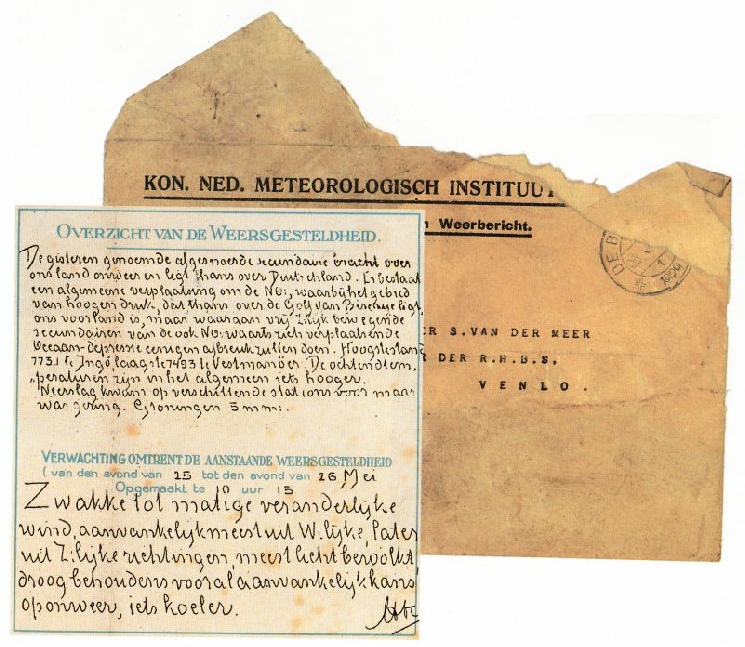 KON. NED. METEOROLOGISCH INSTITUUT
Weerbericht.
DE B
S. VAN DER MEER
DER R.H.B.S.
VENLO.
OVERZICHT VAN DE WEERSGESTELDHEID.
De gisteren genoemde afgesnoerde secundaire bracht over
ons land onweer en ligt thans over Duitschland. Er bestaat
een algemeene verplaatsing om de NO:, waarbij het gebied
van hoogen druk, dat thans over de Golf van Biscaye ligt,
ons voorland is, maar waaraan vrij zijk bewegende
secundairen van de ook NO:waarts zich verplaatsende
Oceaan-depressie eenigen afbreuk zullen doen. Hoogste stand
773.1 te Ingö laagste 749.3 te Vestmanöer. De ochtendtem-
peraturen zijn in het algemeen iets hooger.
Neerslag kwam op verschillende stations voor maar
was gering. Groningen 5 mm:.
VERWACHTING OMTRENT DE AANSTAANDE WEERSGESTELDHEID
(van den avond van 25 tot den avond van 26 Mei
Opgemaakt te 10 uur 15
Zwakke tot matige veranderlijke
wind, aanvankelijk meest uit W.lijke, later
uit Z.lijke richtingen, meest licht bewolkt
droog behoudens vooral aanvankelijk kans
op onweer, iets koeler.